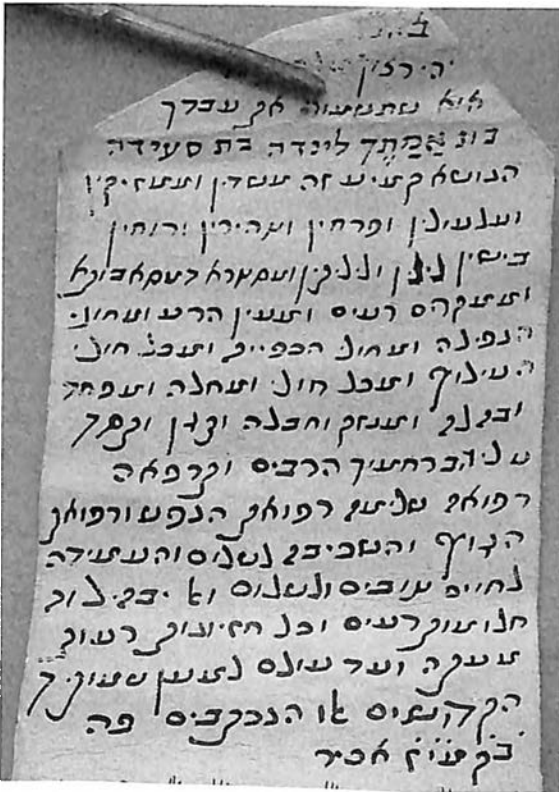 יהי רצון
אי״א שתשמור את עבדך
אמתך לינדה בת סעידה
הנושא קמיע זה משדין וממזיקין
ופרחין ומהירין ורוחין
בישין לילין ולילתין
וממקרים רעים ומעין הרע ומחולי
הנפילה ומחולי הכפייה ומכל חולי
העילוף ומכל חולי ומחלה ומפחד
ובהלה ומנזק וחבלה
עליה ברחמיך הרבים ותרפאה
רפואה שלימה רפואת הנפש ורפואת
הגוף והשכיבה לשלום והעמידה
לחיים טובים ולשלום ואל יבהילוה
חלומות רעים וכל חזיונות רעות
מעתה ועד עולם למען שמותיך
הקדושים אלו הנכתבים פה
בקמיע אכיר